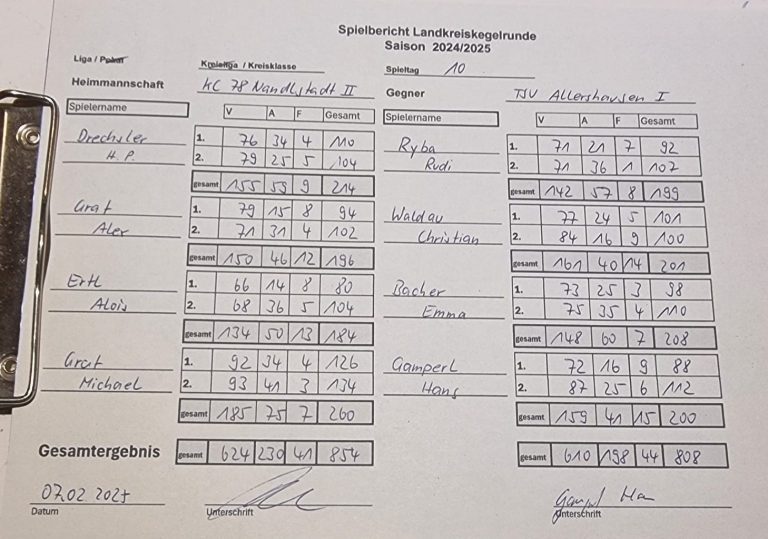 Spielbericht Landkreiskegelrunde
Saison 2024/2025
Liga / Pokal Kreisliga / Kreisklasse Spieltag 10
Heimmannschaft KC 78 Nandlstadt II Gegner TSV Allershausen I
Spielername V A F Gesamt Spielername V A F Gesamt
Drechsler 1. 76 34 4 110 Ryba 1. 71 21 7 92
H.P. 2. 79 25 5 104 Rudi 2. 71 36 1 107
gesamt 155 59 9 214 gesamt 142 57 8 199
Graf 1. 79 15 8 94 Waldau 1. 77 24 5 101
2. 71 31 4 102 Christian 2. 84 16 9 100
gesamt 150 46 12 196 gesamt 161 40 14 201
Ertl 1. 66 14 8 80 Bacher 1. 73 25 3 98
Alois 2. 68 36 5 104 Emma 2. 75 35 4 110
gesamt 134 50 13 184 gesamt 148 60 7 208
Graf 1. 92 34 4 126 Gamperl 1. 72 16 9 88
Michael 2. 93 41 3 134 Hans 2. 87 25 6 112
gesamt 185 75 7 260 gesamt 159 41 15 200
Gesamtergebnis gesamt 624 230 41 854 gesamt 610 198 44 808
07.02.2025
Datum Unterschrift Unterschrift